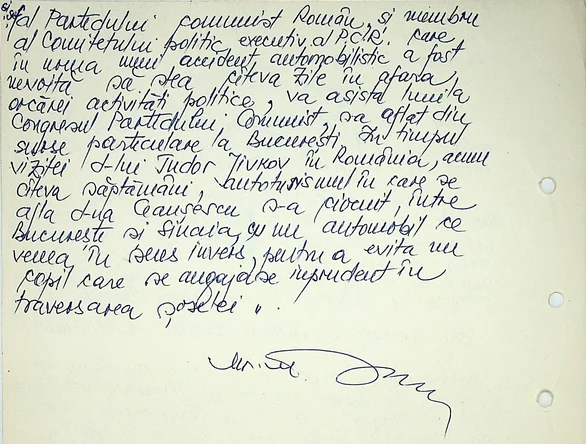 al Partidului comunist Român, și membru
al Comitetului politic executiv al P.C.R. care
în urma unui accident automobilistic a fost
nevoită să stea cîteva zile în afara
orcărei activităti politice, va asista luni la
Congresul Partidului Comunist, s-a aflat din
surse particulare la București. În timpul
vizitei d-lui Tudor Jivkov în România, acum
cîteva săptămâni, autoturismul în care se
afla d-na Ceausescu s-a ciocnit, între
București si Sinaia, cu un automobil ce
venea în sens invers, pentru a evita un
copil care se angajase inprudent în
traversarea șoselei".